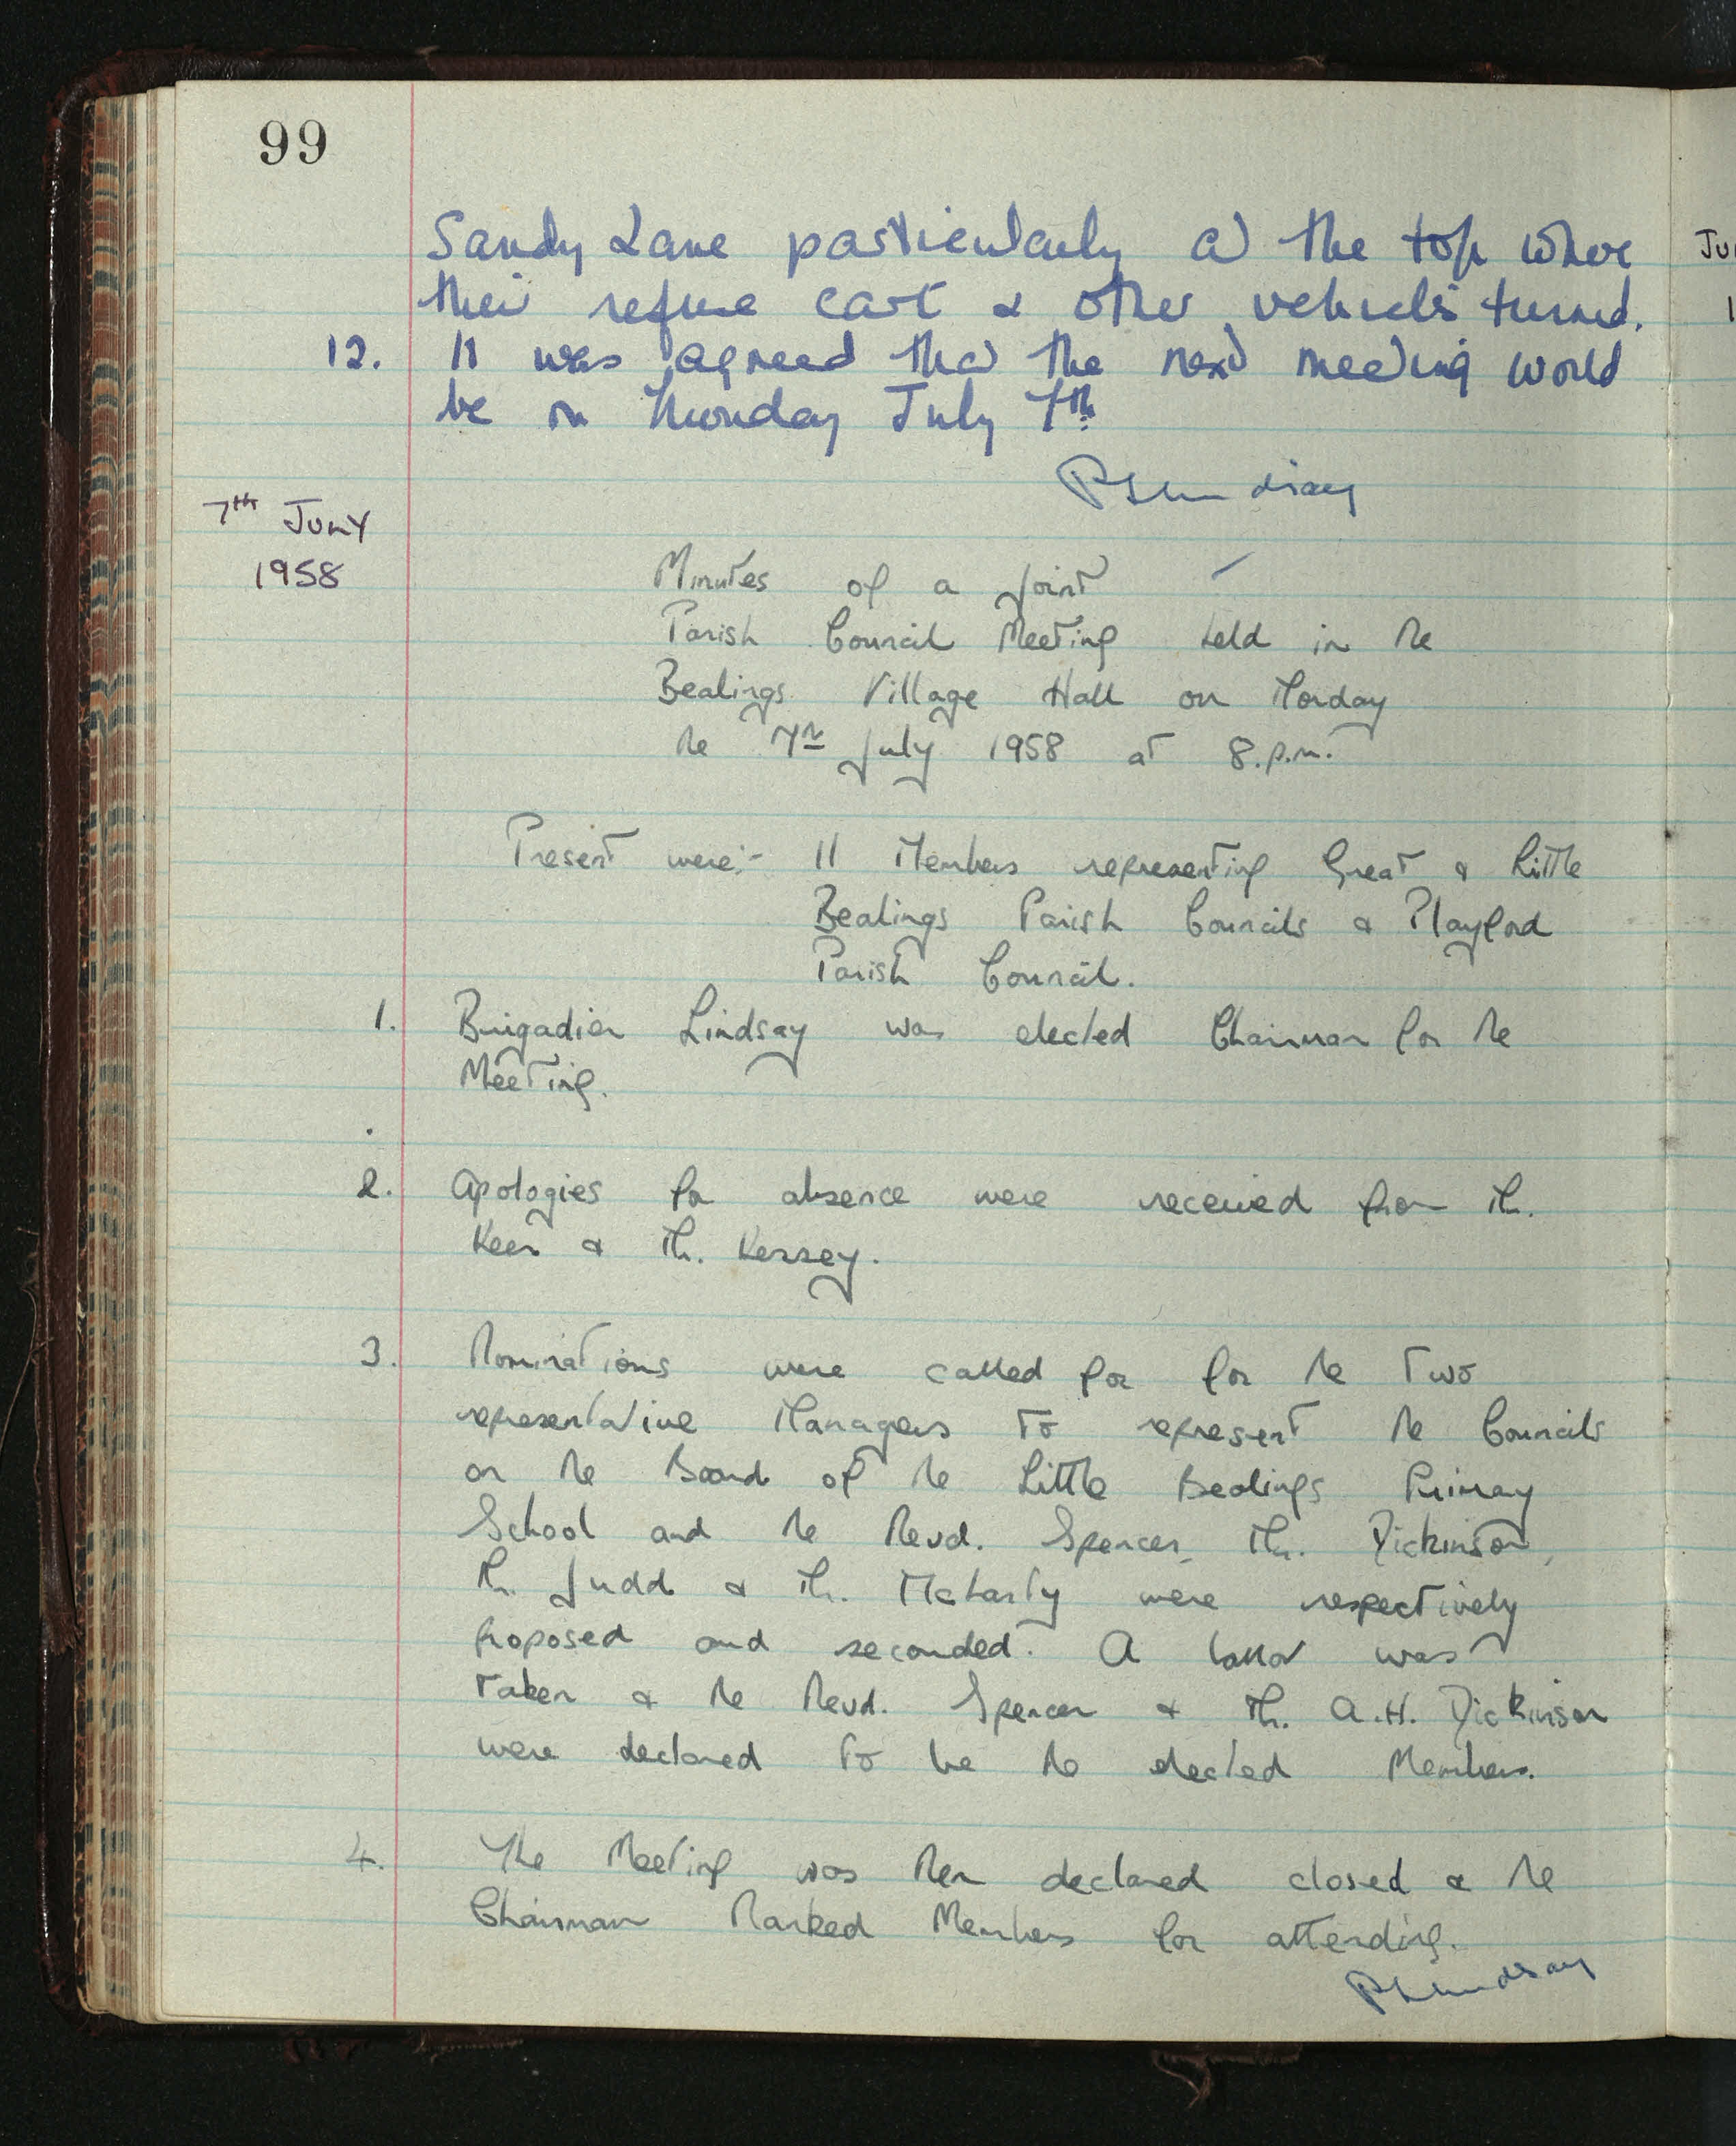 99
Sandy Lane particularly at the top where
their refuse cart & other vehicles turned.
12. It was agreed that the next meeting would
be on Monday July 7th
P Lindsay
7th JULY
1958
Minutes of a Joint
Parish Council Meeting held in the
Bealings Village Hall on Monday
the 7th July 1958 at 8.p.m.
Present were:- 11 Members representing Great & Little
Bealings Parish Councils & Playford
Parish Council.
1. Brigadier Lindsay was elected Chairman for the
Meeting.
2. Apologies for absence were received from Mr.
Keer & Mr. Kersey.
3. Nominations were called for for the two
representative Managers to represent the Councils
on the Board of the Little Bealings Primary
School and the Revd. Spencer, Mr. Dickinson,
Mr. Judd & Mr. McCarty were respectively
proposed and seconded. A ballot was
taken & the Revd. Spencer & Mr. A.H. Dickinson
were declared to be the elected Members.
4. The Meeting was then declared closed & the
Chairman thanked Members for attending.
P Lindsay